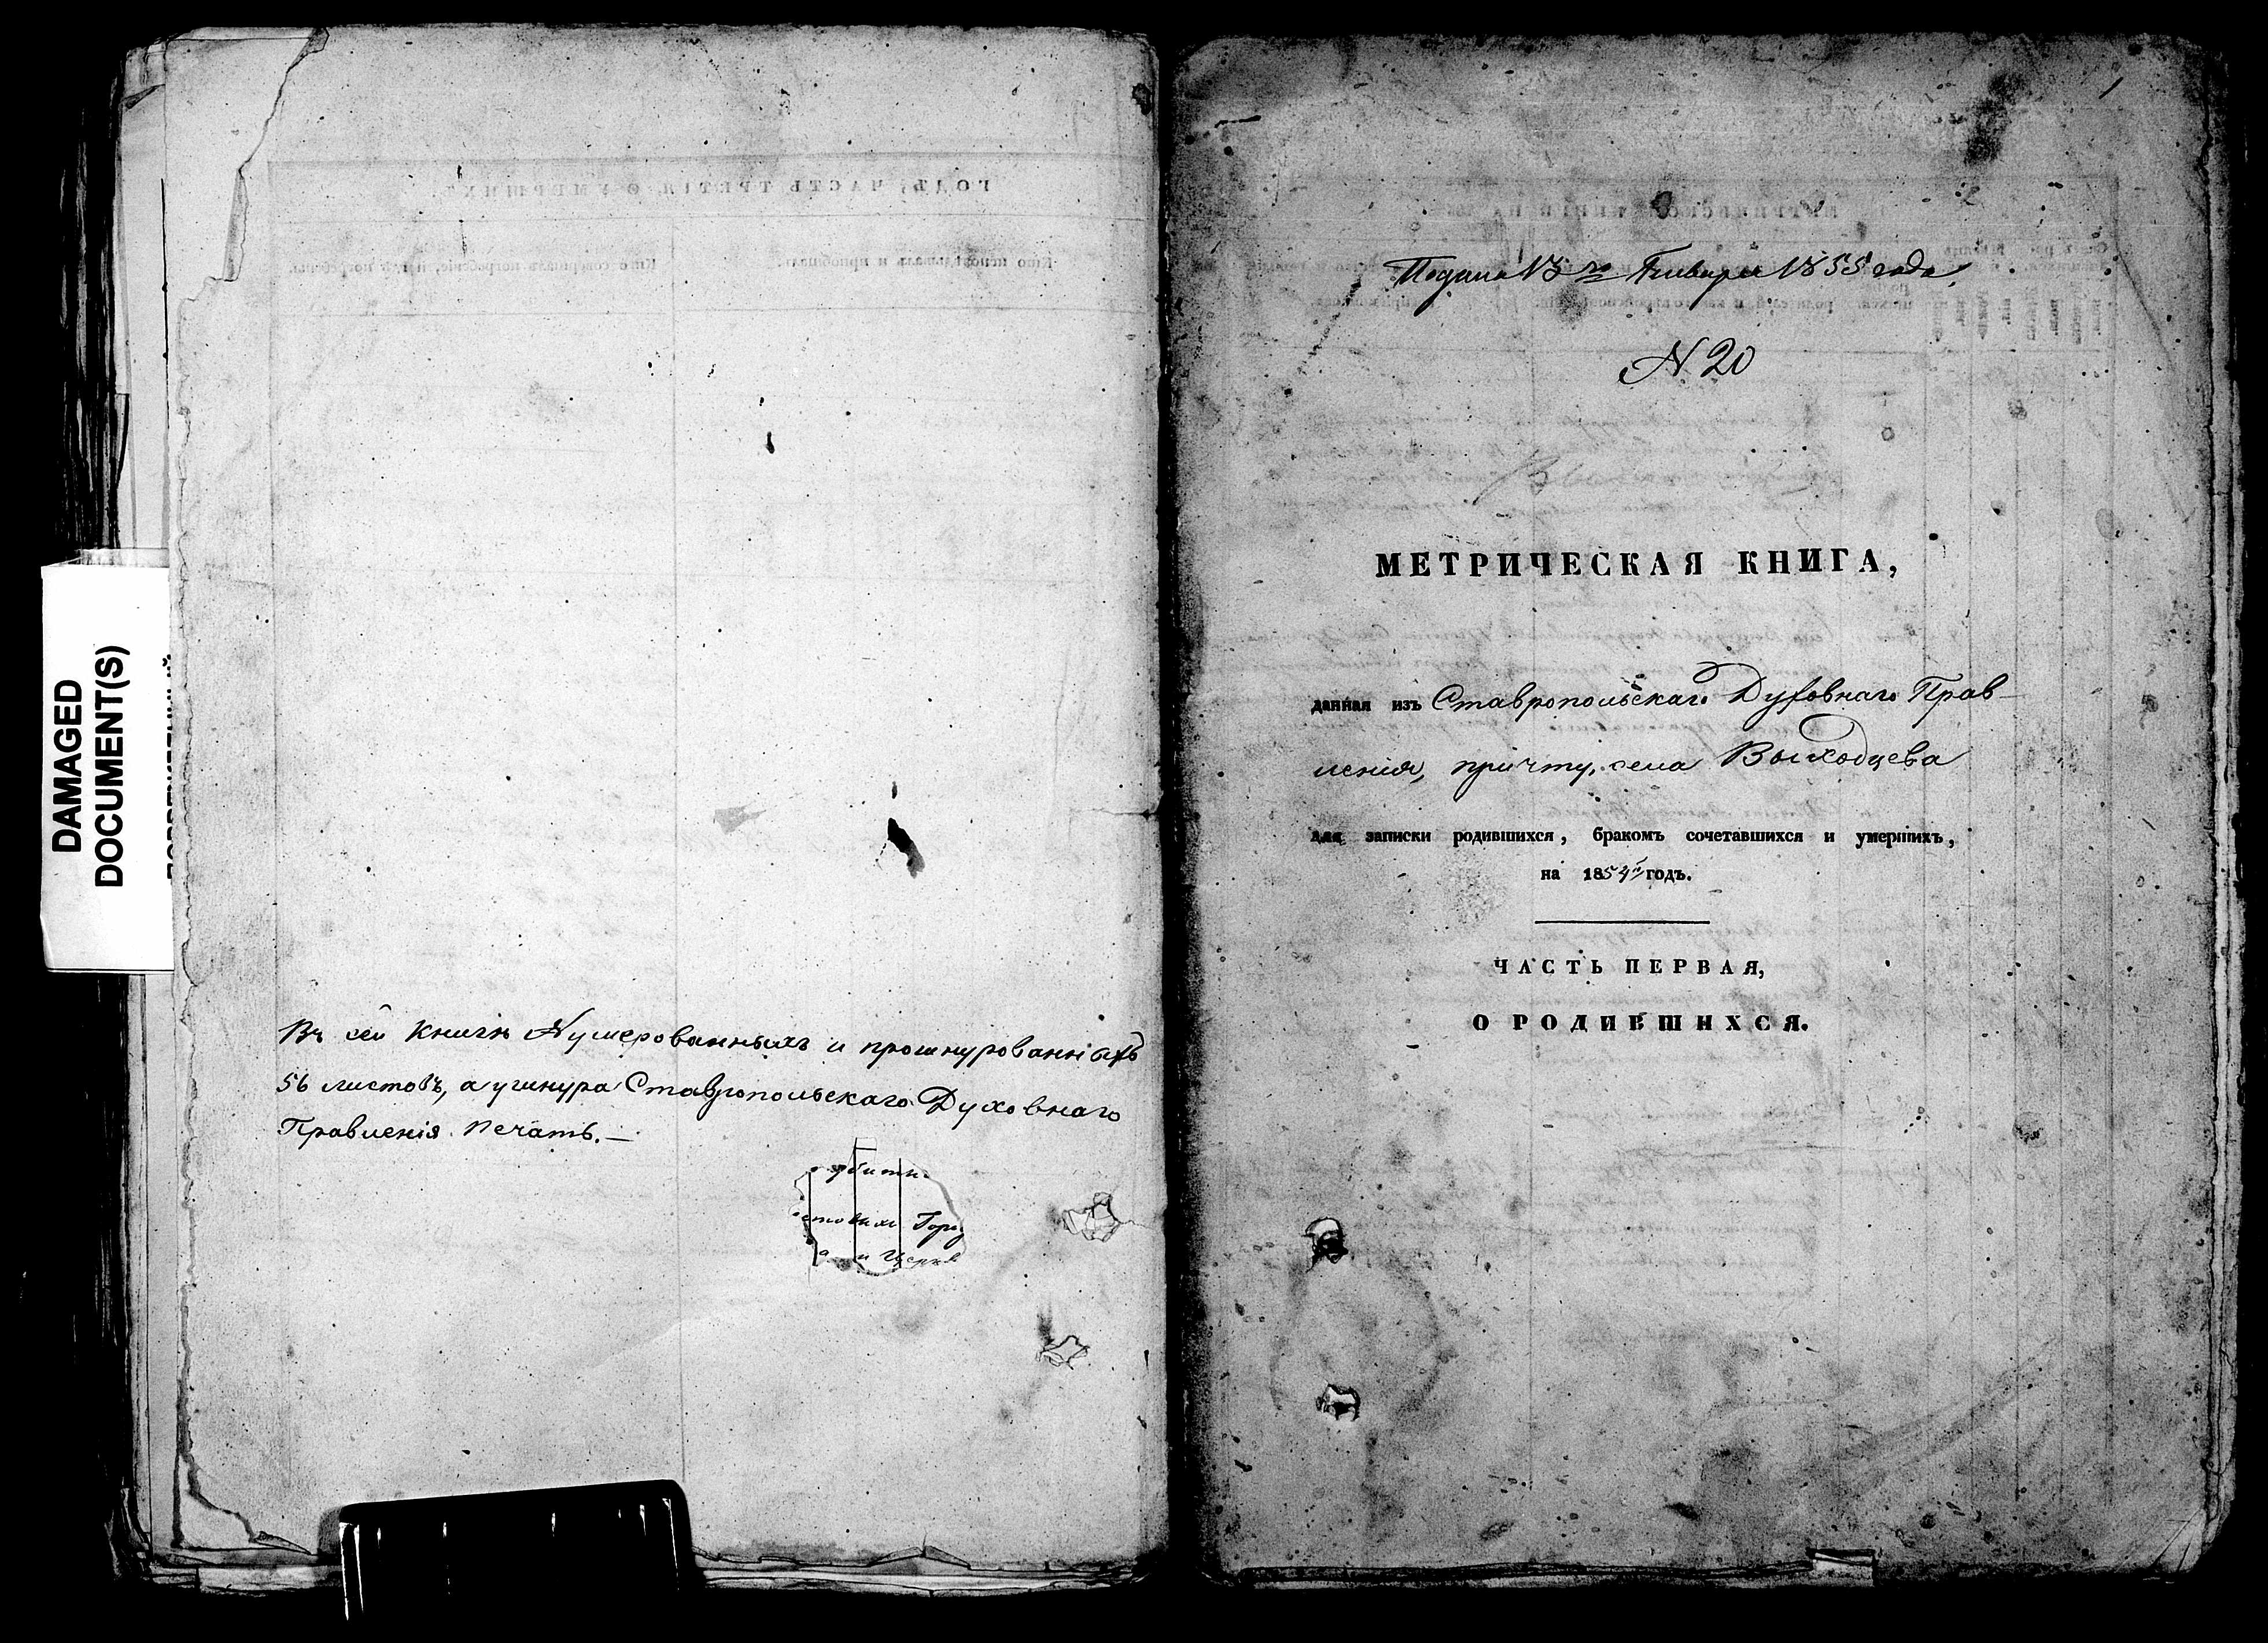 DAMAGED
DOCUMENT(S)
Въ сей книгѣ Нумерованныхъ и прошнурованныхъ
56 листовъ, а у шнура Ставропольскаго Духовнаго
Правленія печать.—
1
Подана 13 го Января 1855 года,
N 20
МЕТРИЧЕСКАЯ КНИГА,
данная изъ Ставропольскаго Духовнаго Прав-
ленія, причту села Выходцева
для записки родившихся, бракомъ сочетавшихся и умершихъ,
на 1854й годъ.
ЧАСТЬ ПЕРВАЯ,
О РОДИВШИХСЯ.